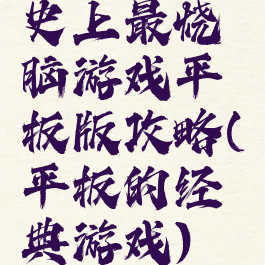 史上最烧
脑游戏平
板版攻略(
平板的经
典游戏)